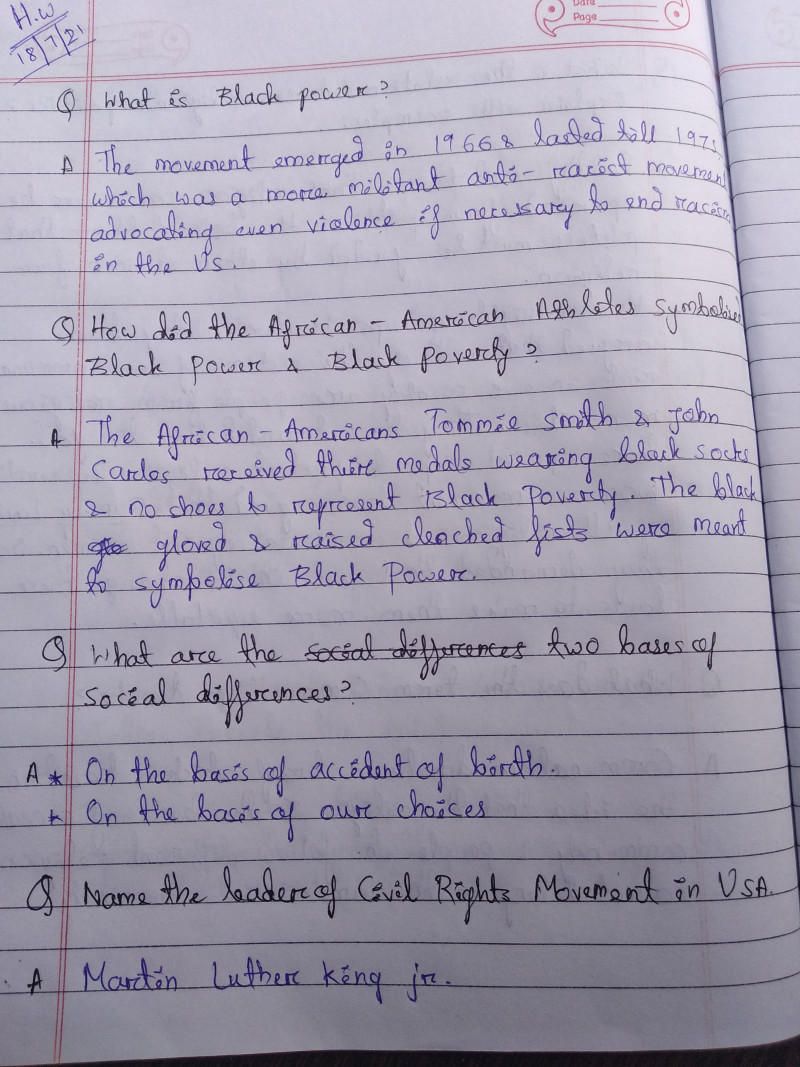 H.W
18/7/21
Date
Page
Q What is Black power?
A The movement emerged in 1966 & lasted till 1975,
which was a more militant anti-racist movement
advocating even violence if necessary to end racism
in the Us.
Q How did the African-American Athletes symbolise
Black Power & Black Poverty?
A The African-Americans Tommie smith & John
Carlos received thier medals wearing black socks
& no shoes to represent Black Poverty. The black
gloved & raised clenched fists were meant
to symbolise Black Power.
Q What are the social differences two bases of
social differences?
A * On the basis of accident of birth.
* On the basis of our choices
Q Name the leader of Civil Rights Movement in USA.
A Martin Luther King jr.